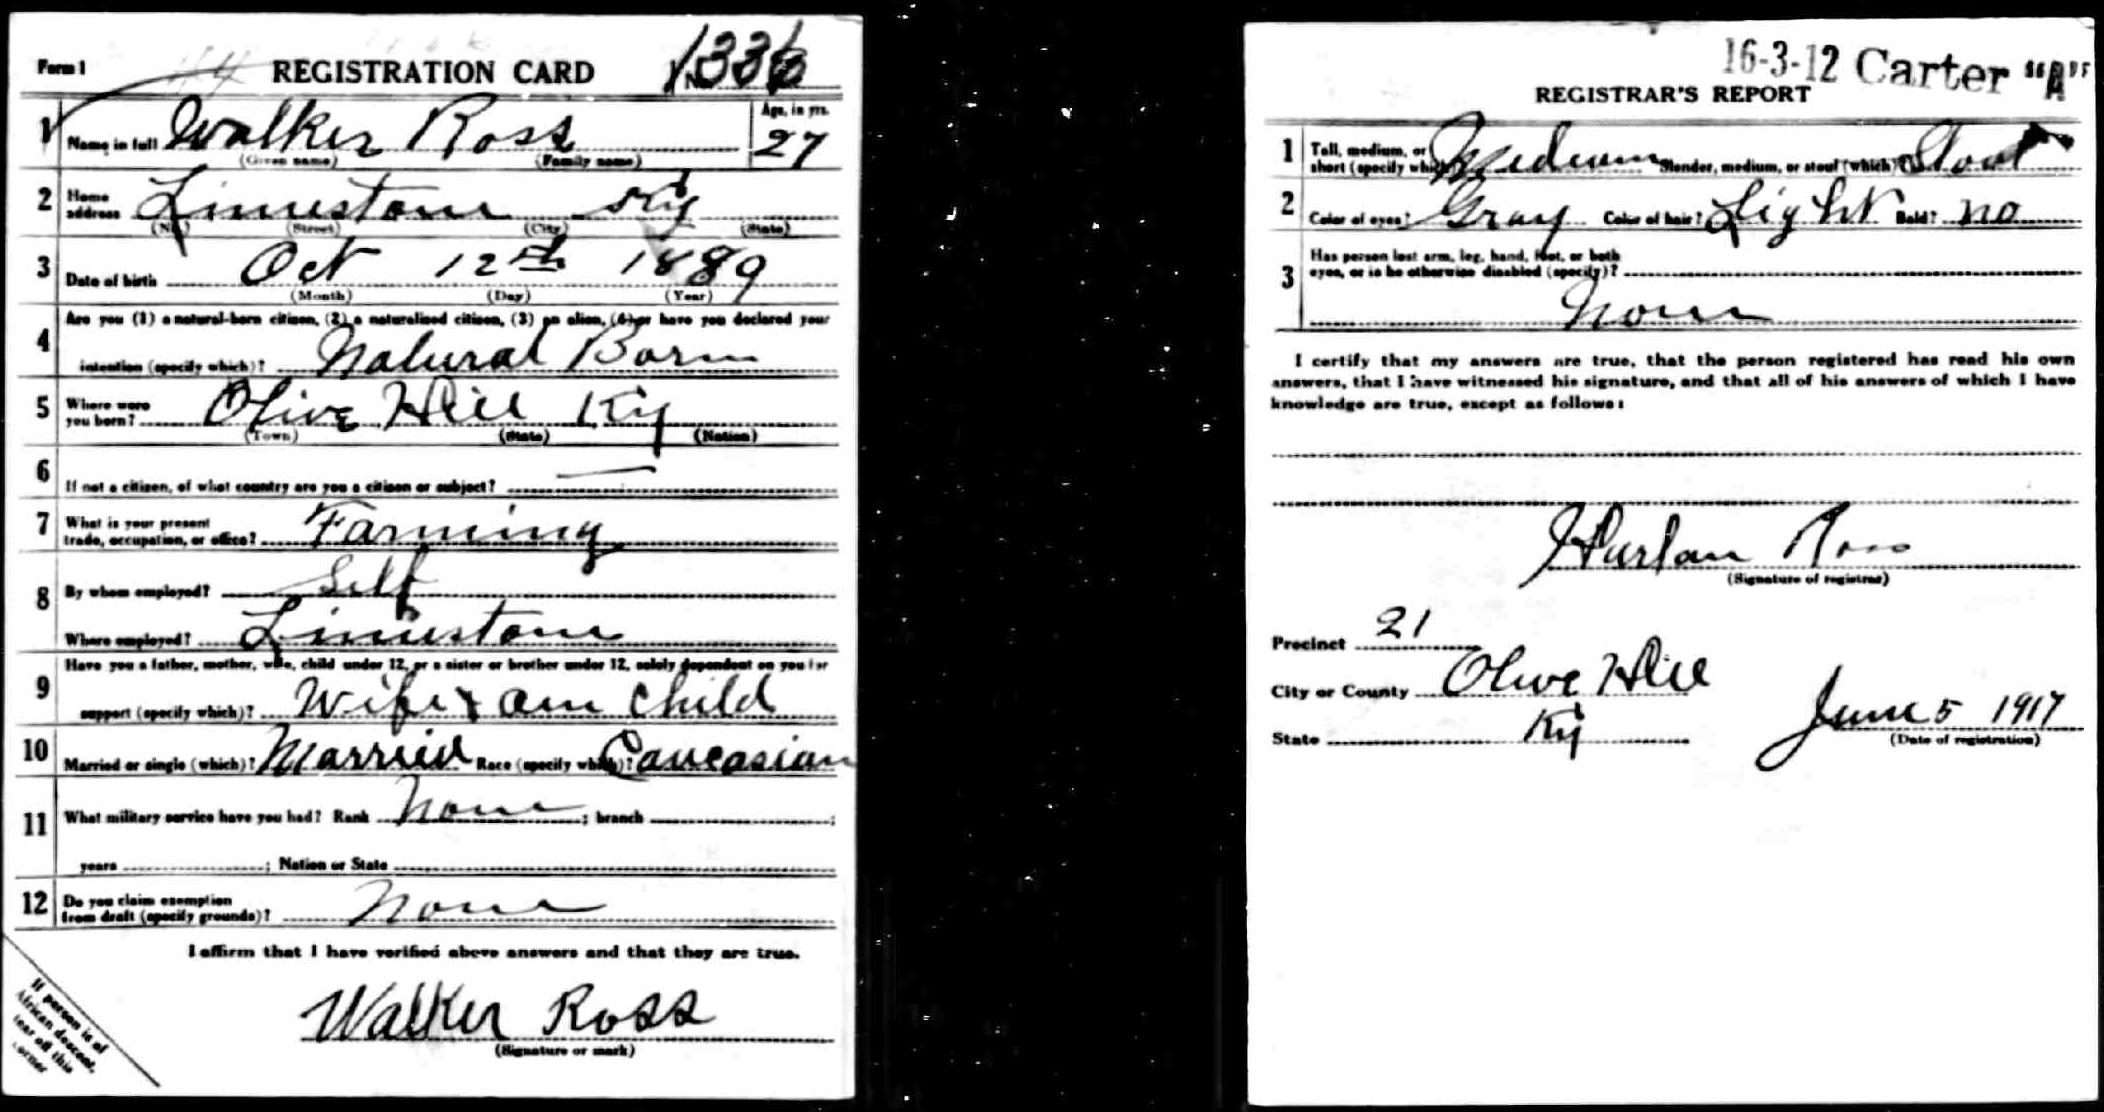 Form 1 REGISTRATION CARD No. 1336
1 Name in full Walker Ross Age, in yrs. 27
(Given name) (Family name)
2 Home address Limestone Ky
(No.) (Street) (City) (State)
3 Date of birth Oct 12th 1889
(Month) (Day) (Year)
4 Are you (1) a natural-born citizen, (2) a naturalized citizen, (3) an alien, (4) or have you declared your
intention (specify which)? Natural Born
5 Where were you born? Olive Hill Ky
(Town) (State) (Nation)
6 If not a citizen, of what country are you a citizen or subject? —
7 What is your present trade, occupation, or office? Farming
8 By whom employed? Self
Where employed? Limestone
9 Have you a father, mother, wife, child under 12, or a sister or brother under 12, solely dependent on you for
support (specify which)? Wife & one child
10 Married or single (which)? Married Race (specify which)? Caucasian
11 What military service have you had? Rank None ; branch ;
years ; Nation or State
12 Do you claim exemption from draft (specify grounds)? None
I affirm that I have verified above answers and that they are true.
Walker Ross
(Signature or mark)
If person is of
African descent,
tear off this
corner
16-3-12 Carter "A"
REGISTRAR'S REPORT
1 Tall, medium, or short (specify which)? Medium Slender, medium, or stout (which)? Stout
2 Color of eyes? Gray Color of hair? Light Bald? no
3 Has person lost arm, leg, hand, foot, or both
eyes, or is he otherwise disabled (specify)?
None
I certify that my answers are true, that the person registered has read his own
answers, that I have witnessed his signature, and that all of his answers of which I have
knowledge are true, except as follows:
Harlan Ross
(Signature of registrar)
Precinct 21
City or County Olive Hill
State Ky June 5 1917
(Date of registration)